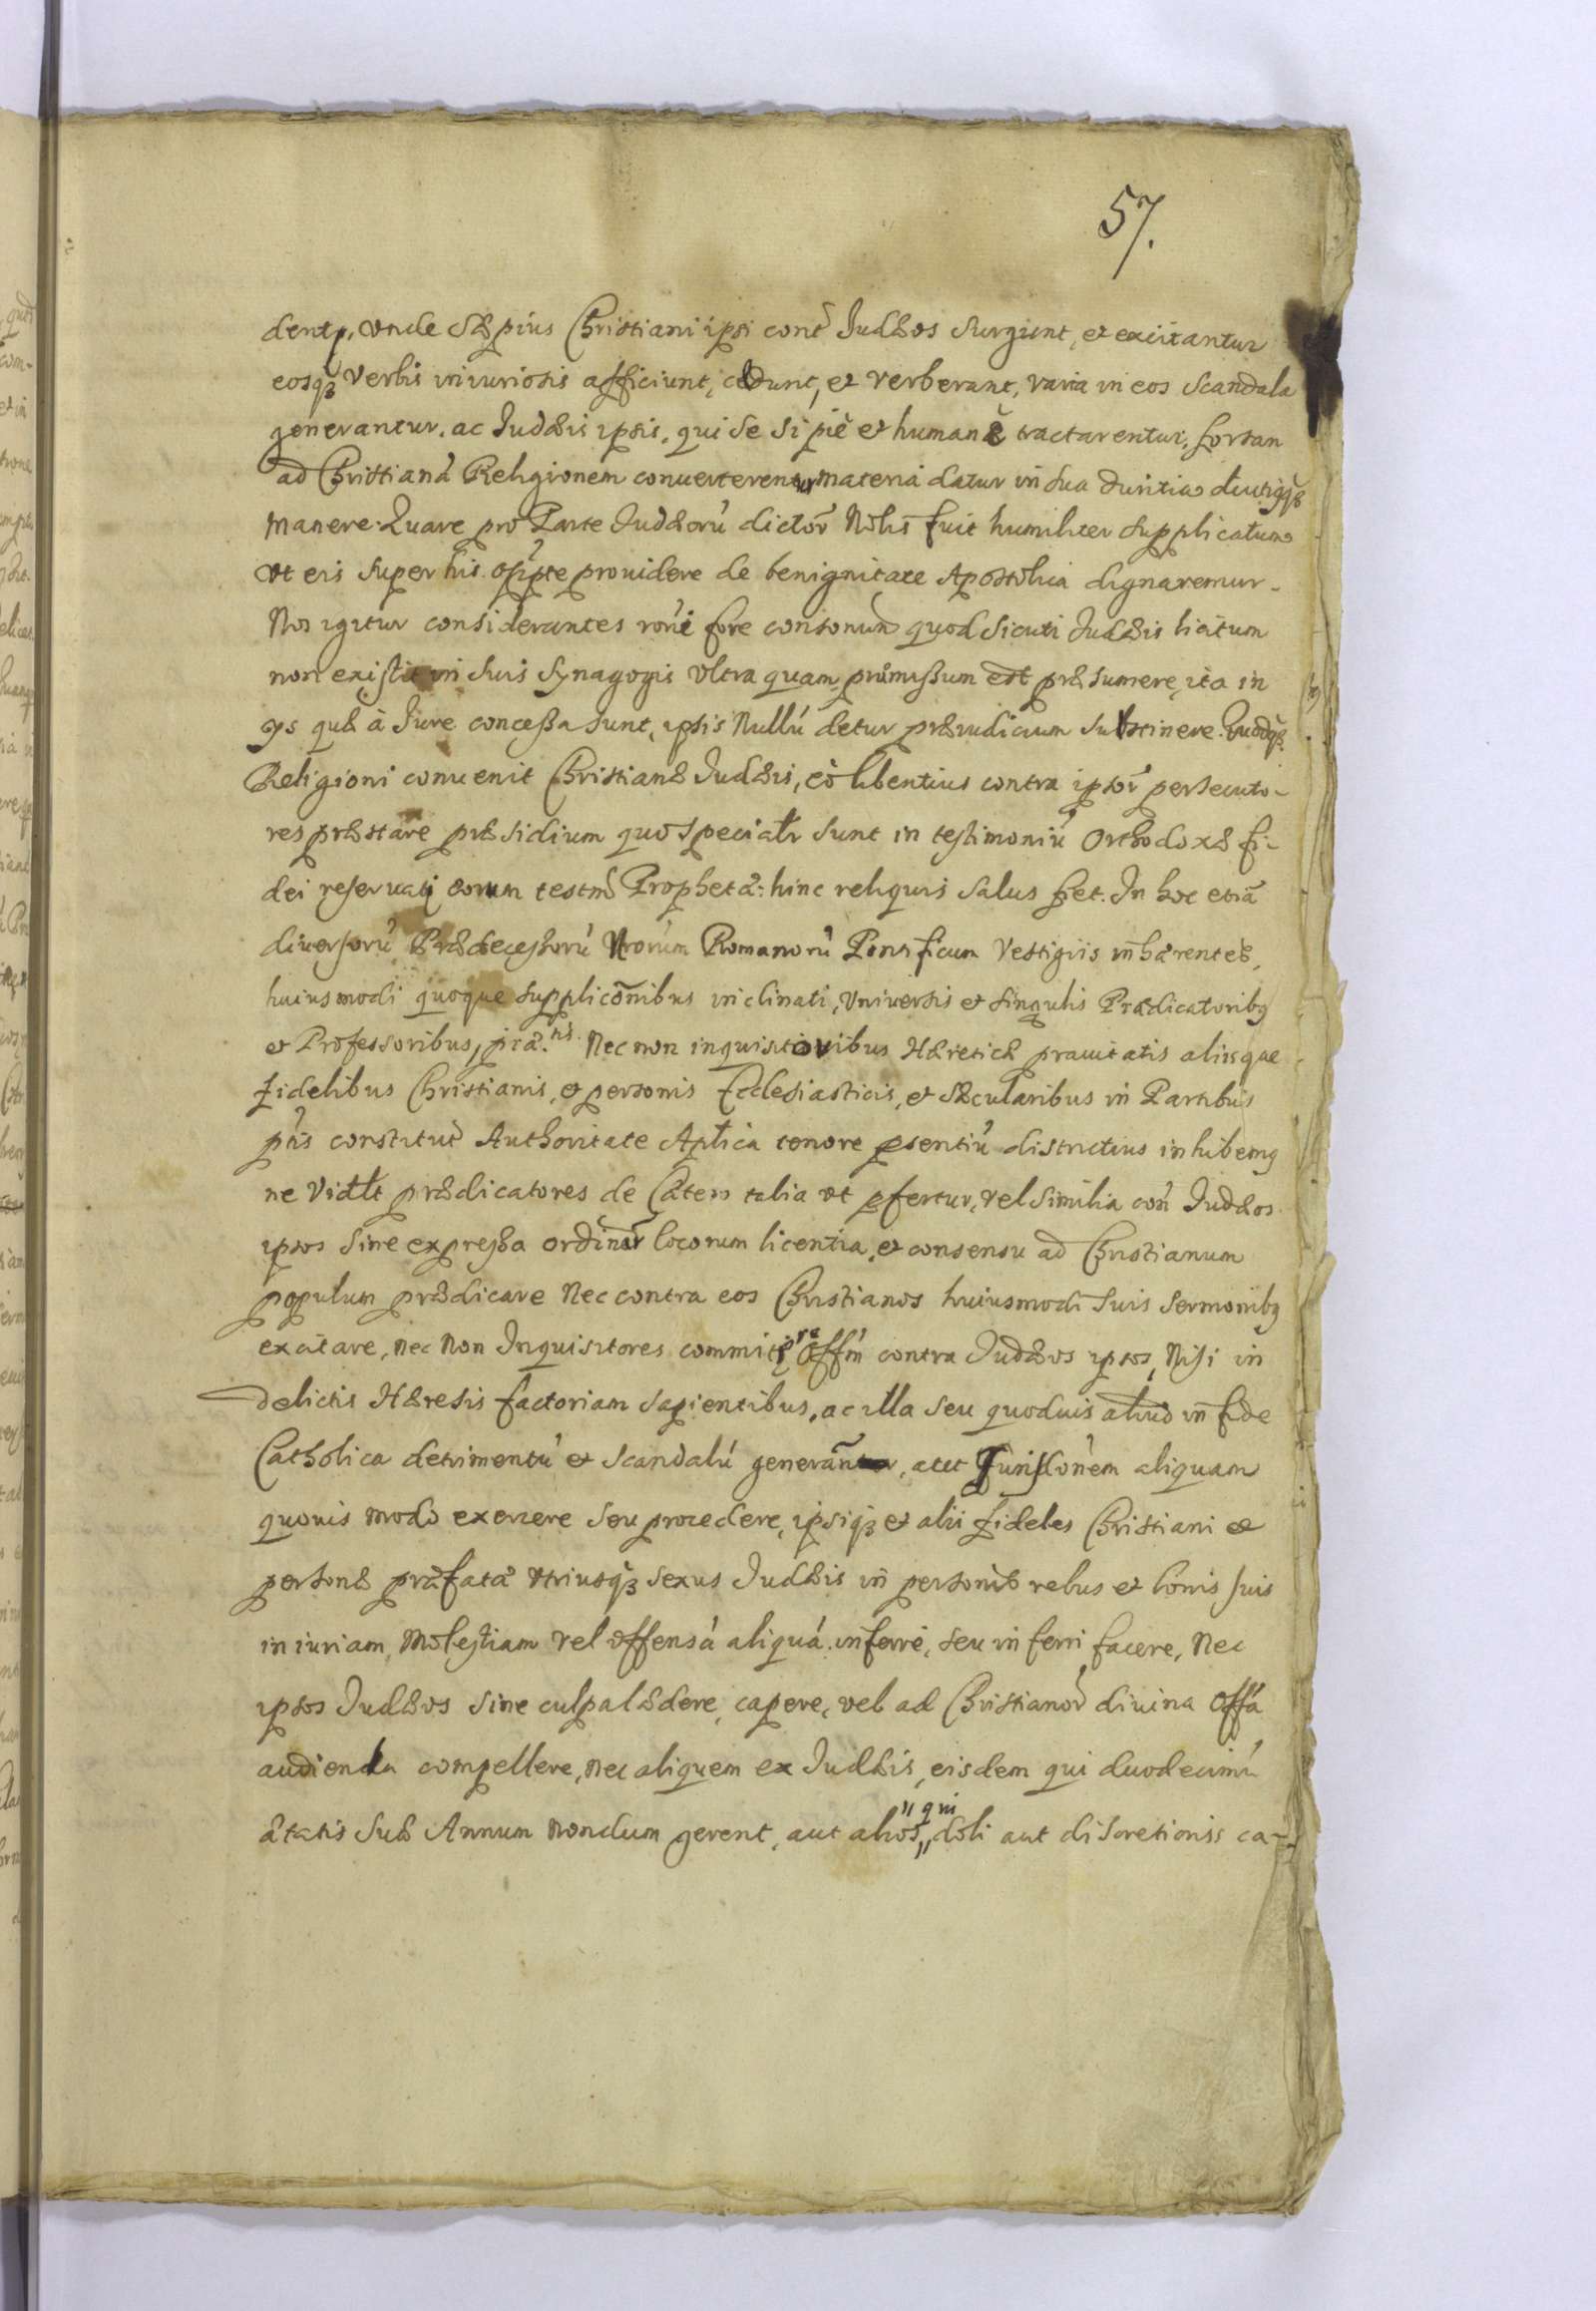 57.
dentę, vnde sæpius Christiani ipsi cont̃ Judæos surgunt, et excitantur
eosq́3 verbis iniuriosis afficiunt, cædunt, et verberant, varia in eos scandala
generantur. ac Judæis ipsis, qui se si piè et humanè tractarentur, forsan
ad Christianã Religionem conuerterentur materia datur in sua duritia
manere. Quare pro Parte Judæorũ dictor̃ Nobis fuit humiliter supplicatum
vt eis super his opp̃te prouidere de benignitate Apostolica dignaremur.
Nos igitur considerantes rõni fore consonum quod sicuti Judæis licitum
non existit in suis synagogis vltra quam permissum est præsumere, ita in
ys quæ à Jure concessa sunt, ipsis Nullũ detur præiudicium substinere. Quodq́3
Religioni conuenit Christianæ Judæis, eò libentius contra ipsor̃ persecuto-
res præstare præsidium quo specialr̃ sunt in testimoniũ Orthodoxæ fi-
dei reseruati eorum testm̃ Prophetâ: hinc reliquis salus fiet. In hoc etiã
diuersorũ Prædecessorũ Nrorum Romanorũ Pontificum Vestigiis inhærentes,
huiusmodi quoque supplicõnibus inclinati, vniuersis et singulis Prædicatoribȝ
et Professoribus, p̃tâ.ris Nec non inquisitoribus Hæreticæ prauitatis aliisque
fidelibus Christianis, et personis Ecclesiasticis, et sæcularibus in Partibus
p̃tis constitut̃ Authoritate Aplica tenore p̃sentiũ districtius inhibemȝ
ne Vidlt prædicatores de Cæters talia vt p̃fertur, vel similia con̄ Judæos
ipsos sine expressa ordinar̃ locorum licentia, et consensu ad Christianum
populum prædicare Nec contra eos Christianos huiusmodi suis sermonibȝ
excitare, nec Non Inquisitores committere Offm̃ contra Judæos ipsos, Nisi in
delictis Hæresis factoriam sapientibus, ac illa seu quoduis aliud in fide
Catholica detrimentũ et scandalũ generant̃, aut Jurisdõnem aliquam
quouis modo exercere seu procedere, ipsiq́3 et alii fideles Christiani et
personæ præfatæ vtriusq́3 sexus Judæis in personis rebus et bonis suis
iniuriam, Molestiam vel offensã aliquã inferre, seu inferri facere, Nec
ipsos Judæos sine culpa lædere, capere, vel ad Christianor̃ diuina Offã
audienda compellere, nec aliquem ex Judæis, eisdem qui duodecimũ
ætatis suæ Annum nondum gerent, aut alios, qui doli aut discretionis ca-